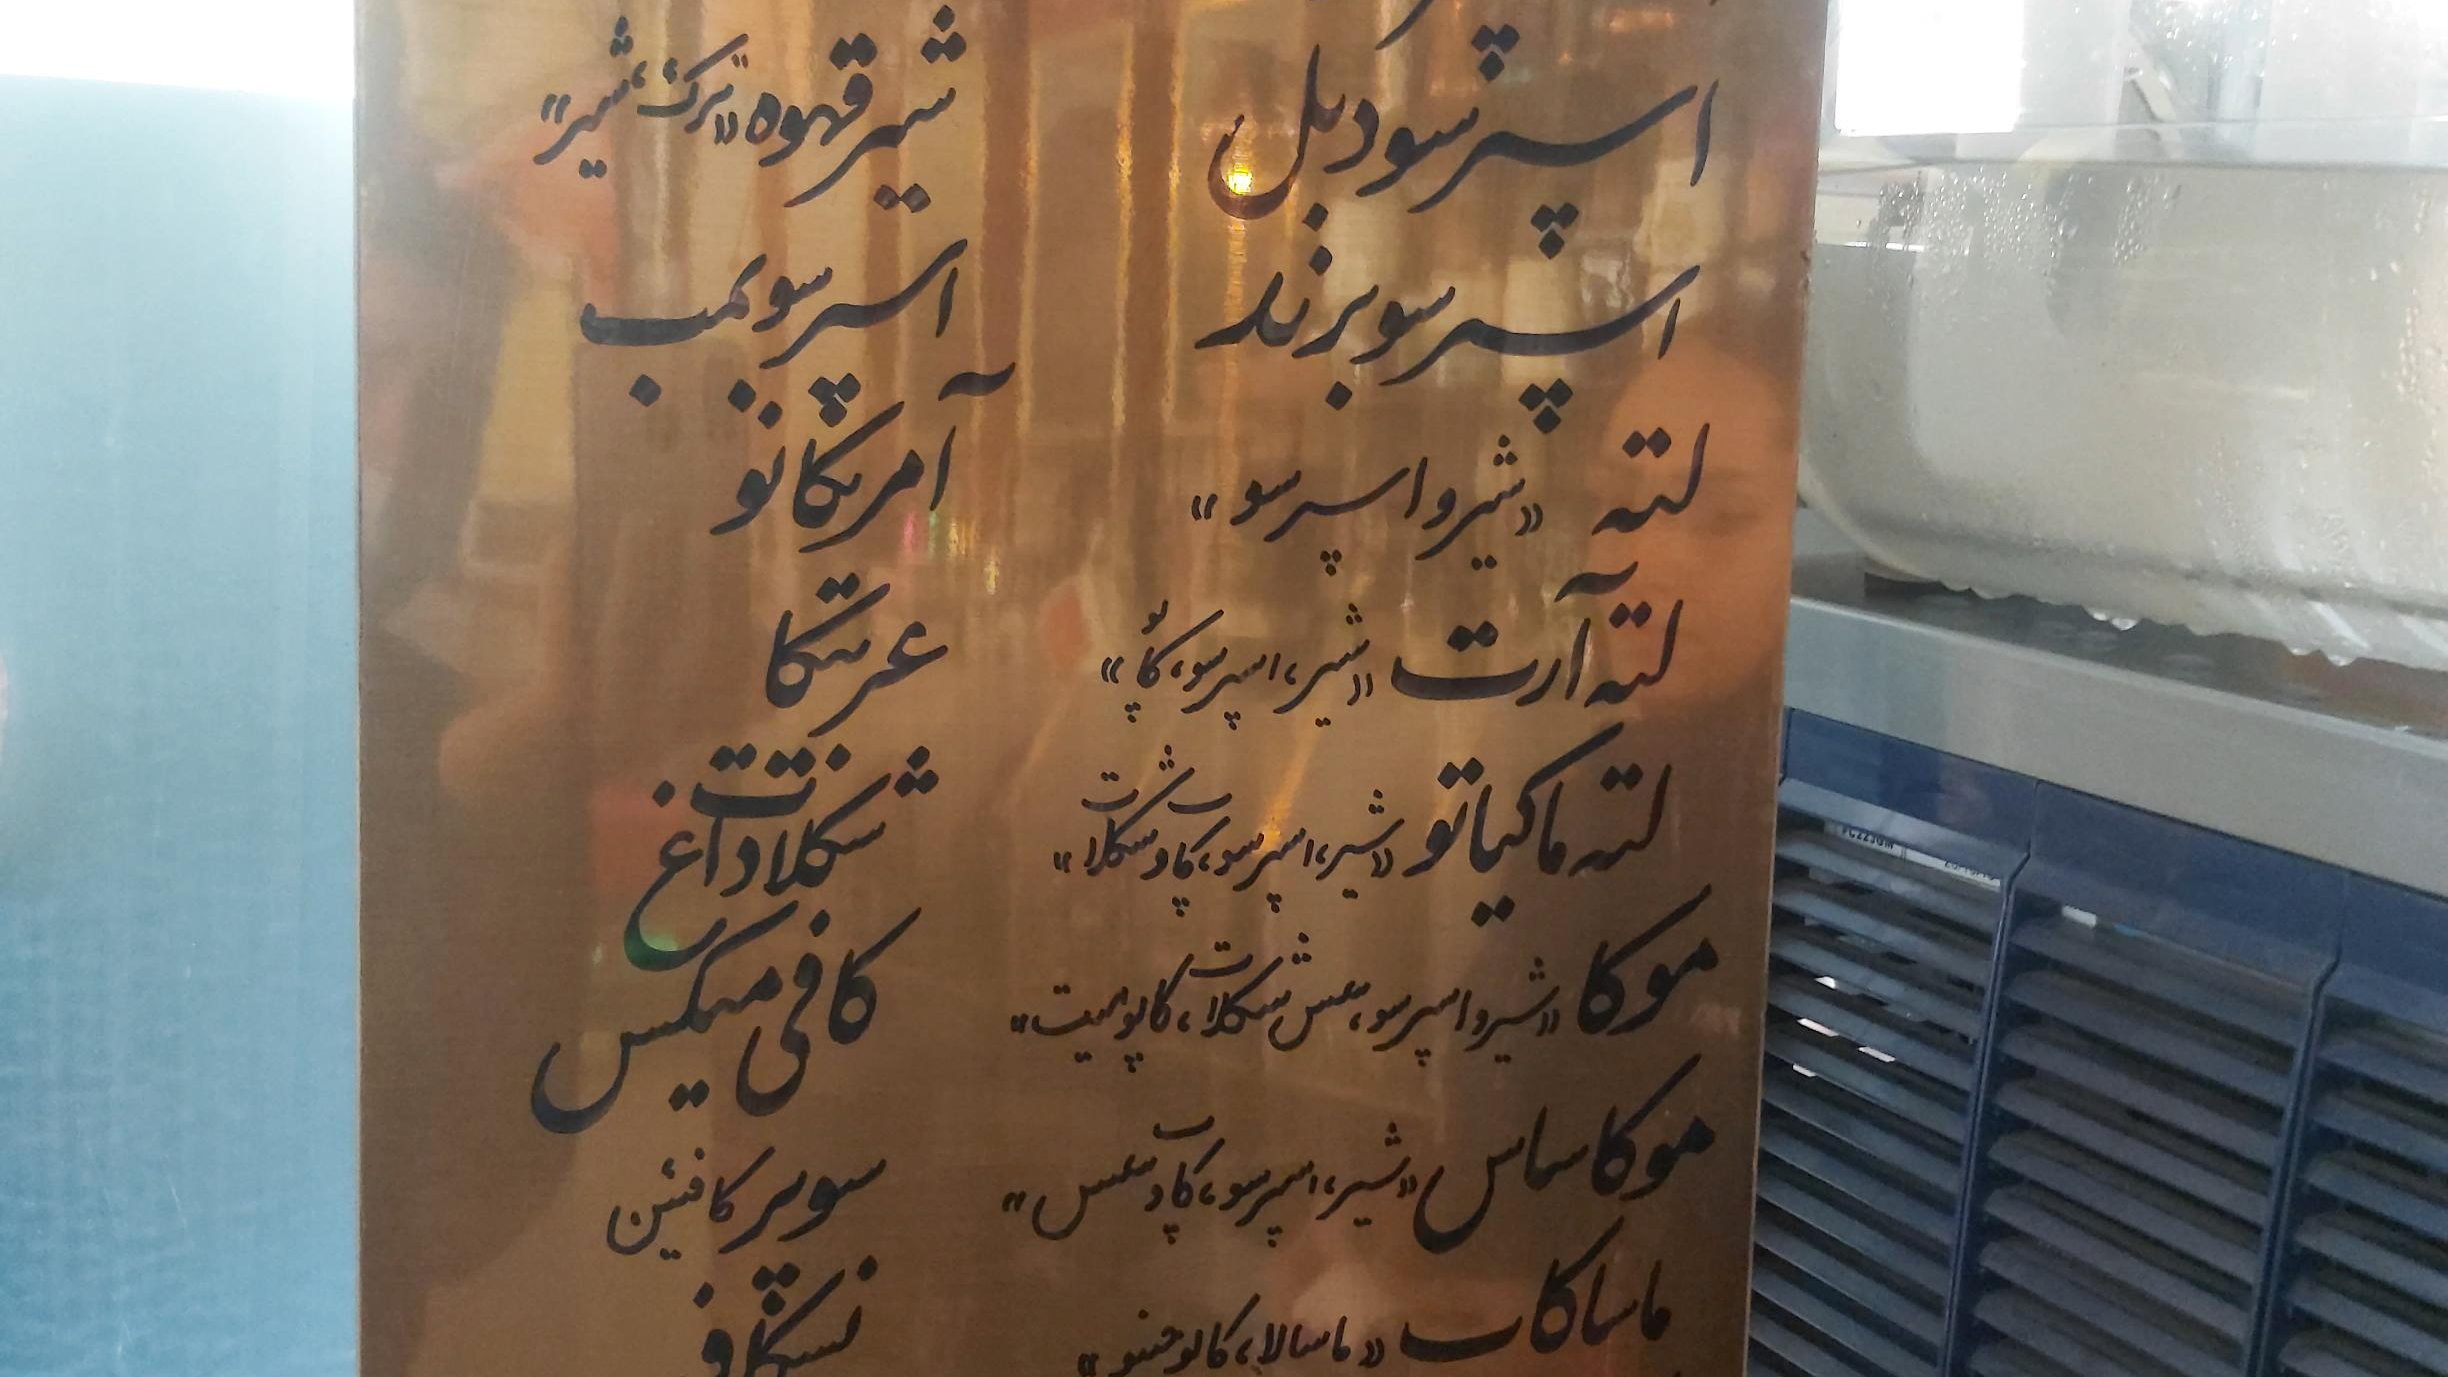 اسپرسو دبل
اسپرسو برزند
لته «شیر و اسپرسو»
لته آرت «شیر، اسپرسو، کاپ»
لته ماکیاتو «شیر، اسپرسو، کاپ و شکلات»
موکا «شیر و اسپرسو، سس شکلات،
موکا سماس «شیر، اسپرسو، کاپ و سس»
ماساکات «ماسالا، کاپوچینو»
شیر قهوه «ترک، شیر»
اسپرسو بمب
آمریکانو
عربیکا
شکلات داغ
کافی میکس
سوپر کافئین
نسکافه